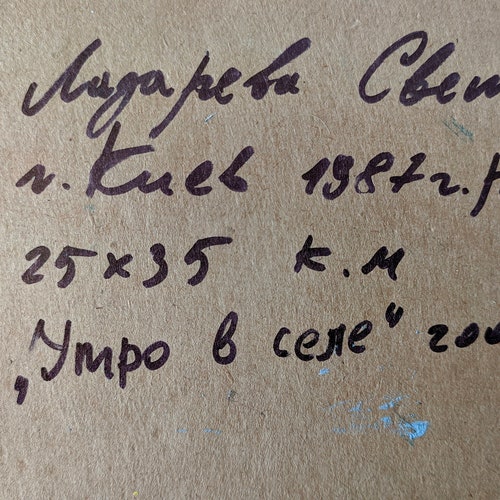 Лазарева Свет
г. Киев 1987г. р
25×35 к.м
„Утро в селе" 200